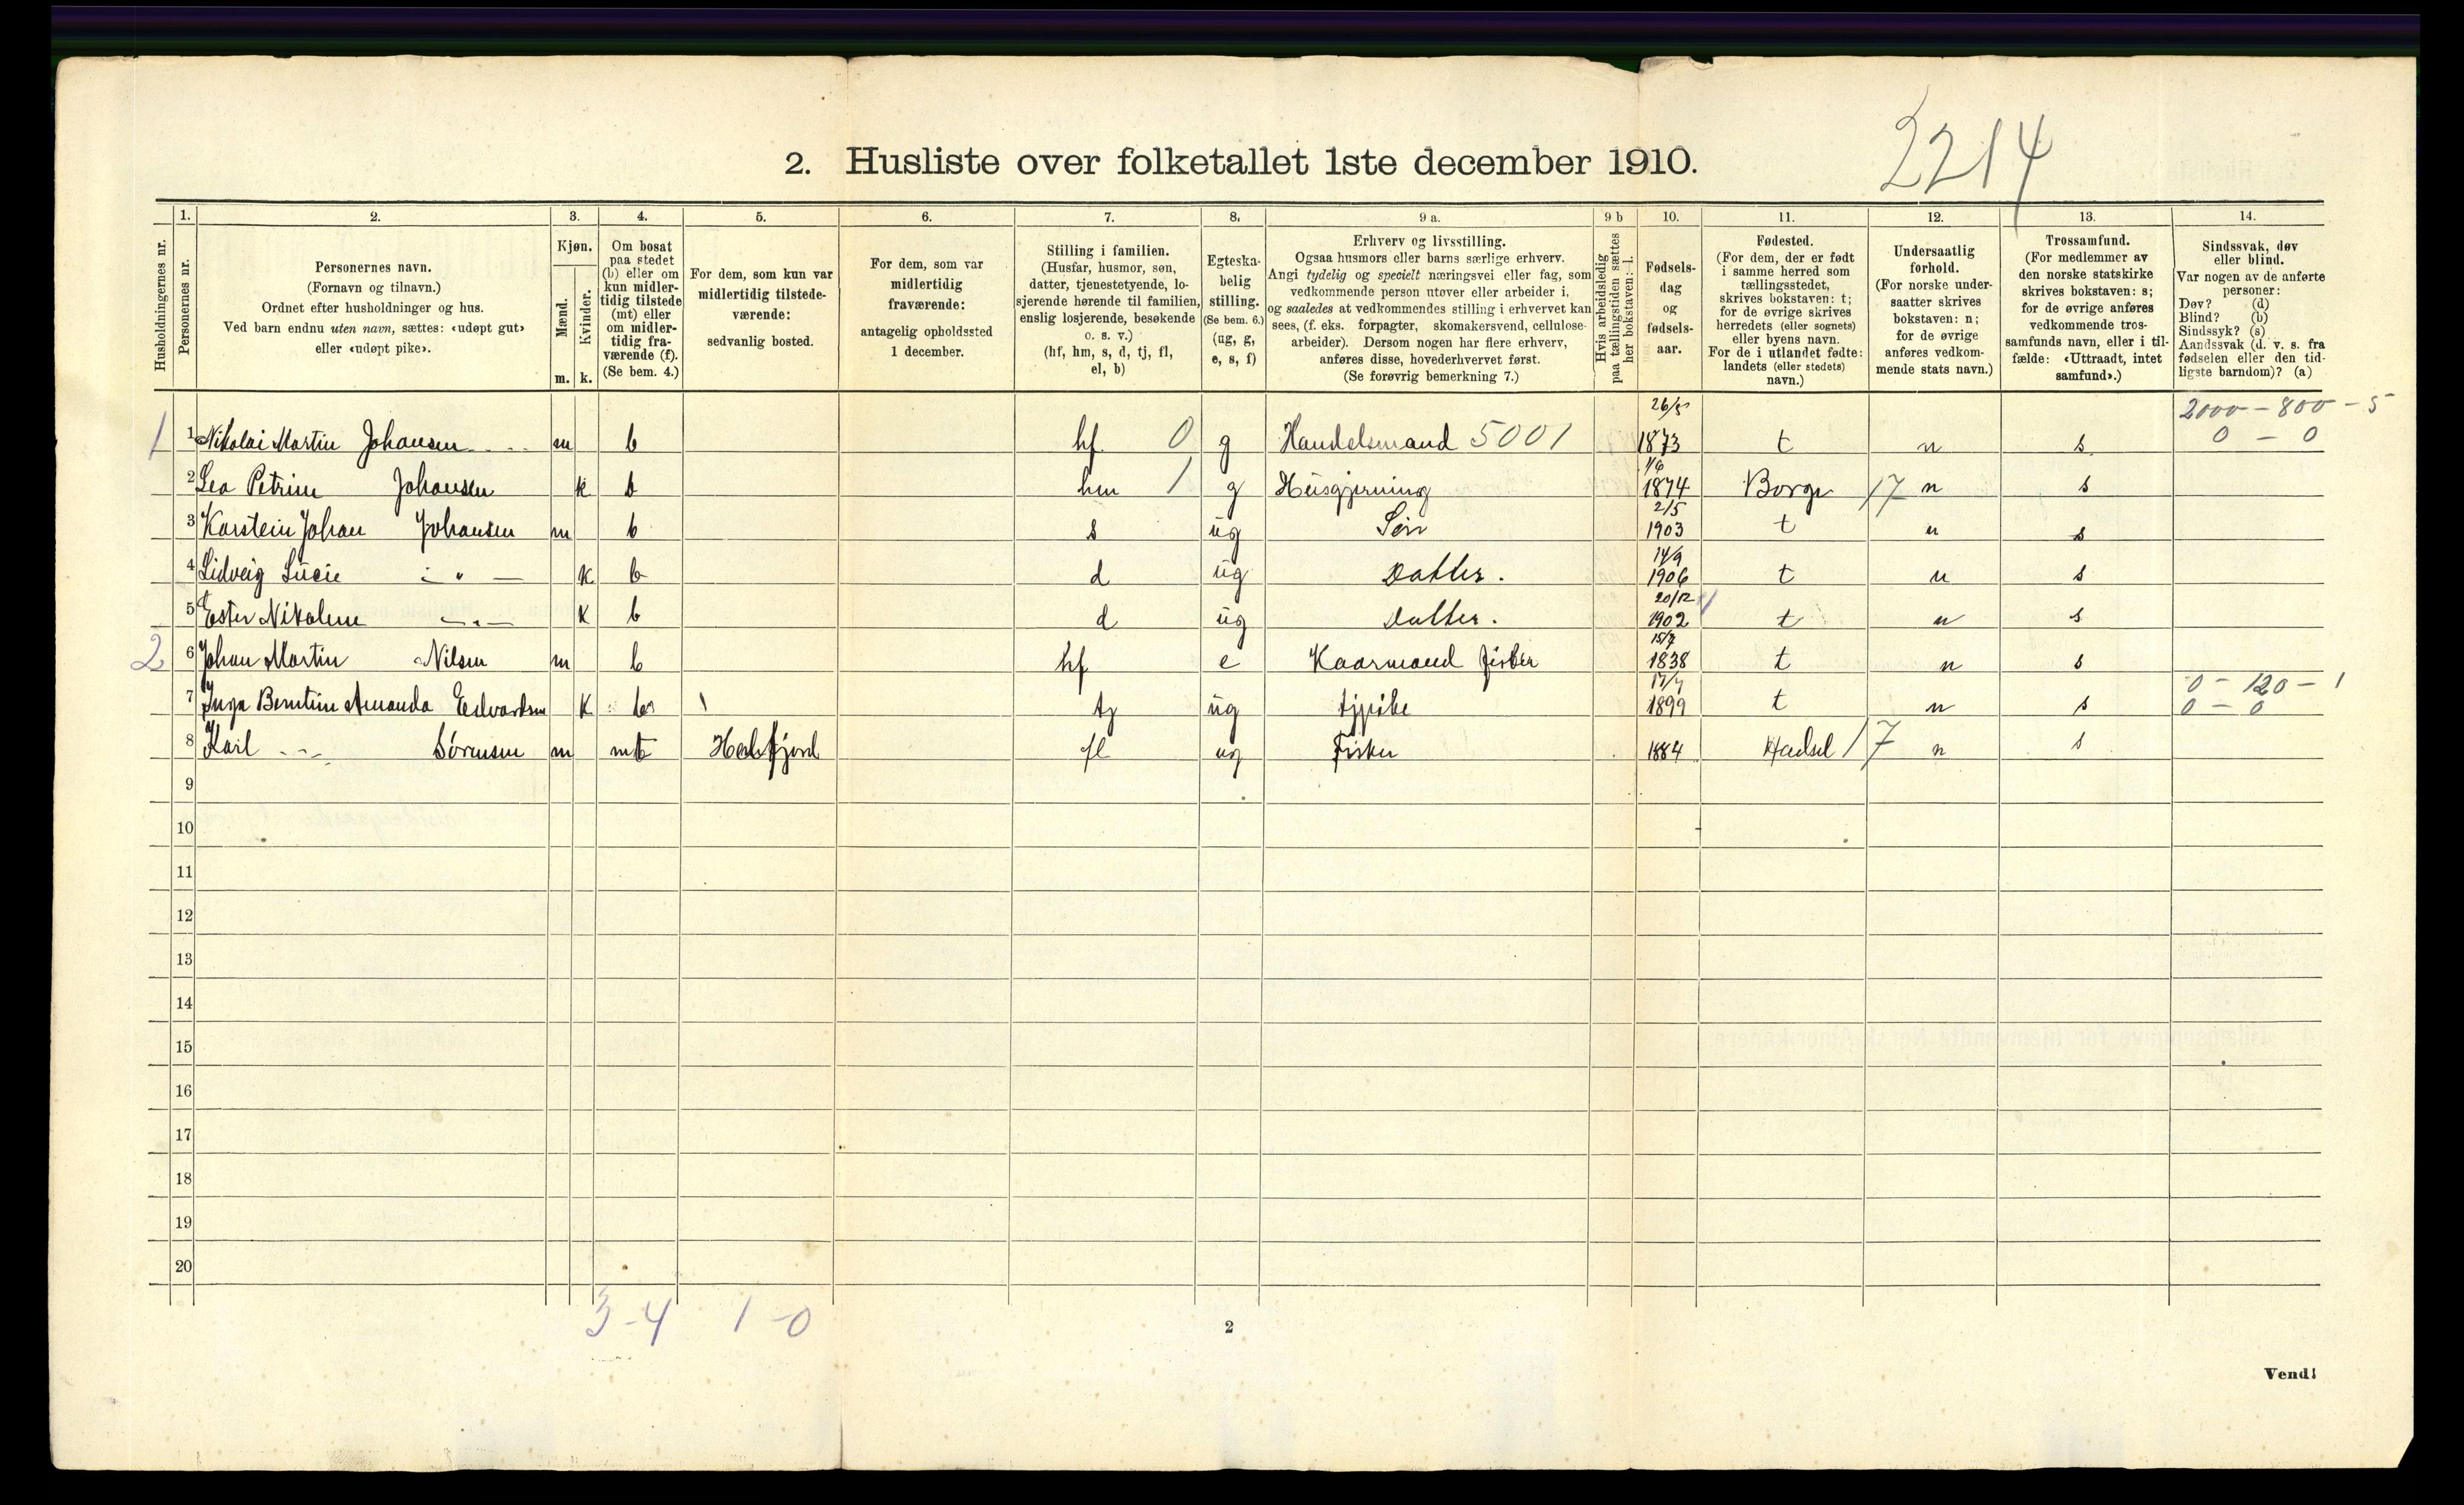 2214
2. Husliste over folketallet 1ste december 1910.
Husholdningernes nr.
1.
Personernes nr.
2.
Personernes navn.
(Fornavn og tilnavn.)
Ordnet efter husholdninger og hus.
Ved barn endnu uten navn, sættes: «udøpt gut»
eller «udøpt pike».
3.
Kjøn.
Mænd.
Kvinder.
m. k.
4.
Om bosat
paa stedet
(b) eller om
kun midler-
tidig tilstede
(mt) eller
om midler-
tidig fra-
værende (f).
(Se bem. 4.)
5.
For dem, som kun var
midlertidig tilstede-
værende:
sedvanlig bosted.
6.
For dem, som var
midlertidig
fraværende:
antagelig opholdssted
1 december.
7.
Stilling i familien.
(Husfar, husmor, søn,
datter, tjenestetyende, lo-
sjerende hørende til familien,
enslig losjerende, besøkende
o. s. v.)
(hf, hm, s, d, tj, fl,
el, b)
8.
Egteska-
belig
stilling.
(Se bem. 6.)
(ug, g,
e, s, f)
9 a.
Erhverv og livsstilling.
Ogsaa husmors eller barns særlige erhverv.
Angi tydelig og specielt næringsvei eller fag, som
vedkommende person utøver eller arbeider i,
og saaledes at vedkommendes stilling i erhvervet kan
sees, (f. eks. forpagter, skomakersvend, cellulose-
arbeider). Dersom nogen har flere erhverv,
anføres disse, hovederhvervet først.
(Se forøvrig bemerkning 7.)
9 b
Hvis arbeidsledig
paa tællingstiden sættes
her bokstaven: l.
10.
Fødsels-
dag
og
fødsels-
aar.
11.
Fødested.
(For dem, der er født
i samme herred som
tællingsstedet,
skrives bokstaven: t;
for de øvrige skrives
herredets (eller sognets)
eller byens navn.
For de i utlandet fødte:
landets (eller stedets)
navn.)
12.
Undersaatlig
forhold.
(For norske under-
saatter skrives
bokstaven: n;
for de øvrige
anføres vedkom-
mende stats navn.)
13.
Trossamfund.
(For medlemmer av
den norske statskirke
skrives bokstaven: s;
for de øvrige anføres
vedkommende tros-
samfunds navn, eller i til-
fælde: «Uttraadt, intet
samfund».)
14.
Sindssvak, døv
eller blind.
Var nogen av de anførte
personer:
Døv? (d)
Blind? (b)
Sindssyk? (s)
Aandssvak (d. v. s. fra
fødselen eller den tid-
ligste barndom)? (a)
1 1 Nikolai Martin Johansen m b hf 0 g Handelsmand 5001 26/5 1873 t n s 2000 - 800 - 5 0 - 0
2 Lea Petrine Johansen k b hm 1 g Husgjerning 1/6 1874 Borge 17 n s
3 Karstein Johan Johansen m b s ug Søn 2/5 1903 t n s
4 Lidveig Lucie - " - k b d ug Datter. 14/9 1906 t n s
5 Ester Nikoline - " - k b d ug Datter. 20/12 1902 t n s
2 6 Johan Martin Nilsen m b hf e Kaarmand Fisker 15/7 1838 t n s
7 Inga Berntine Amanda Edvardsen k b tj ug tjpike 17/7 1899 t n s 0 - 120 - 1 0 - 0
8 Karl Sørensen m mt fl ug Fisker 1884 Hadsel 17 n s
9
10
11
12
13
14
15
16
17
18
19
20
3-4 1-0
2
Vend!